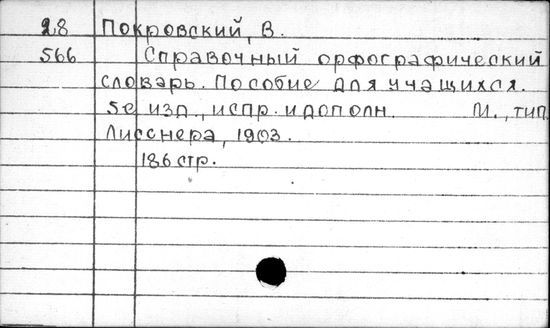 28 Покровский, В.
566 Справочный орфографический
словарь. Пособие для учащихся.
5е изд., испр. и дополн. М., тип.
Лисснера, 1903.
186 стр.